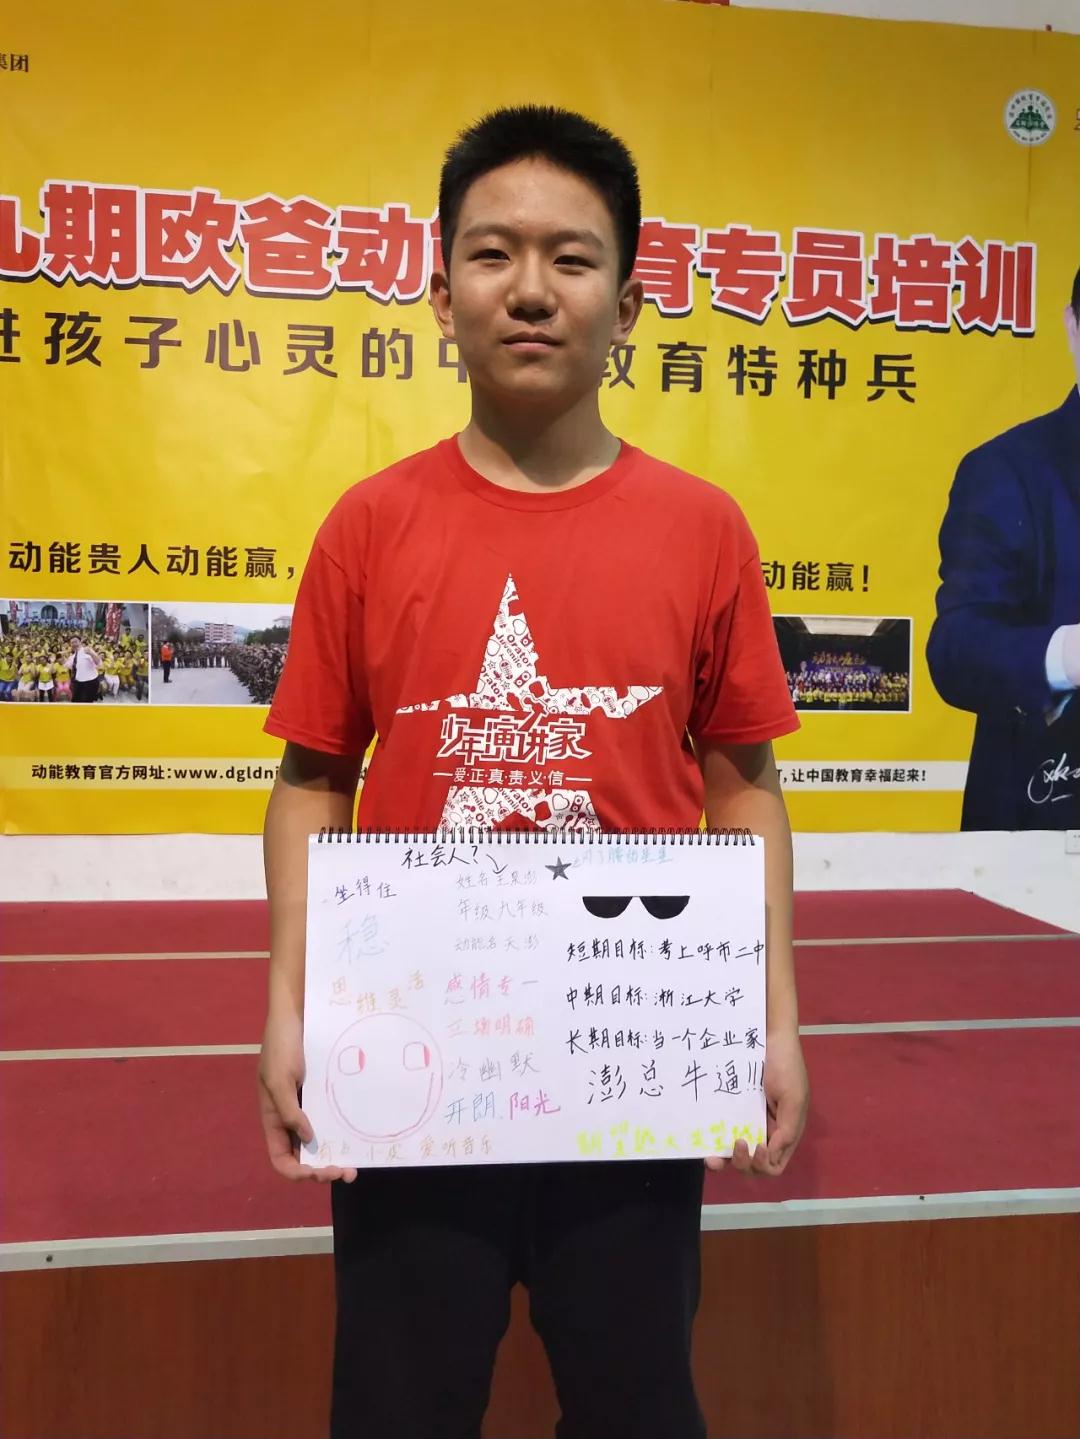 集团
九期欧爸动能 育专员培训
进孩子心灵的中 教育特种兵
动能贵人动能赢，
动能赢！
动能教育官方网址：www.dgldn
让中国教育幸福起来！
Juvenile Orator
少年演讲家
爱·正·真·贵·义·信
社会人？
坐得住
稳
思维灵活
有点小皮 爱听音乐
姓名
年级：九年级
动能名：天澎
感情专一
立场明确
冷幽默
开朗、阳光
短期目标：考上呼市二中
中期目标：浙江大学
长期目标：当一个企业家
澎总牛逼!!!
期望越大